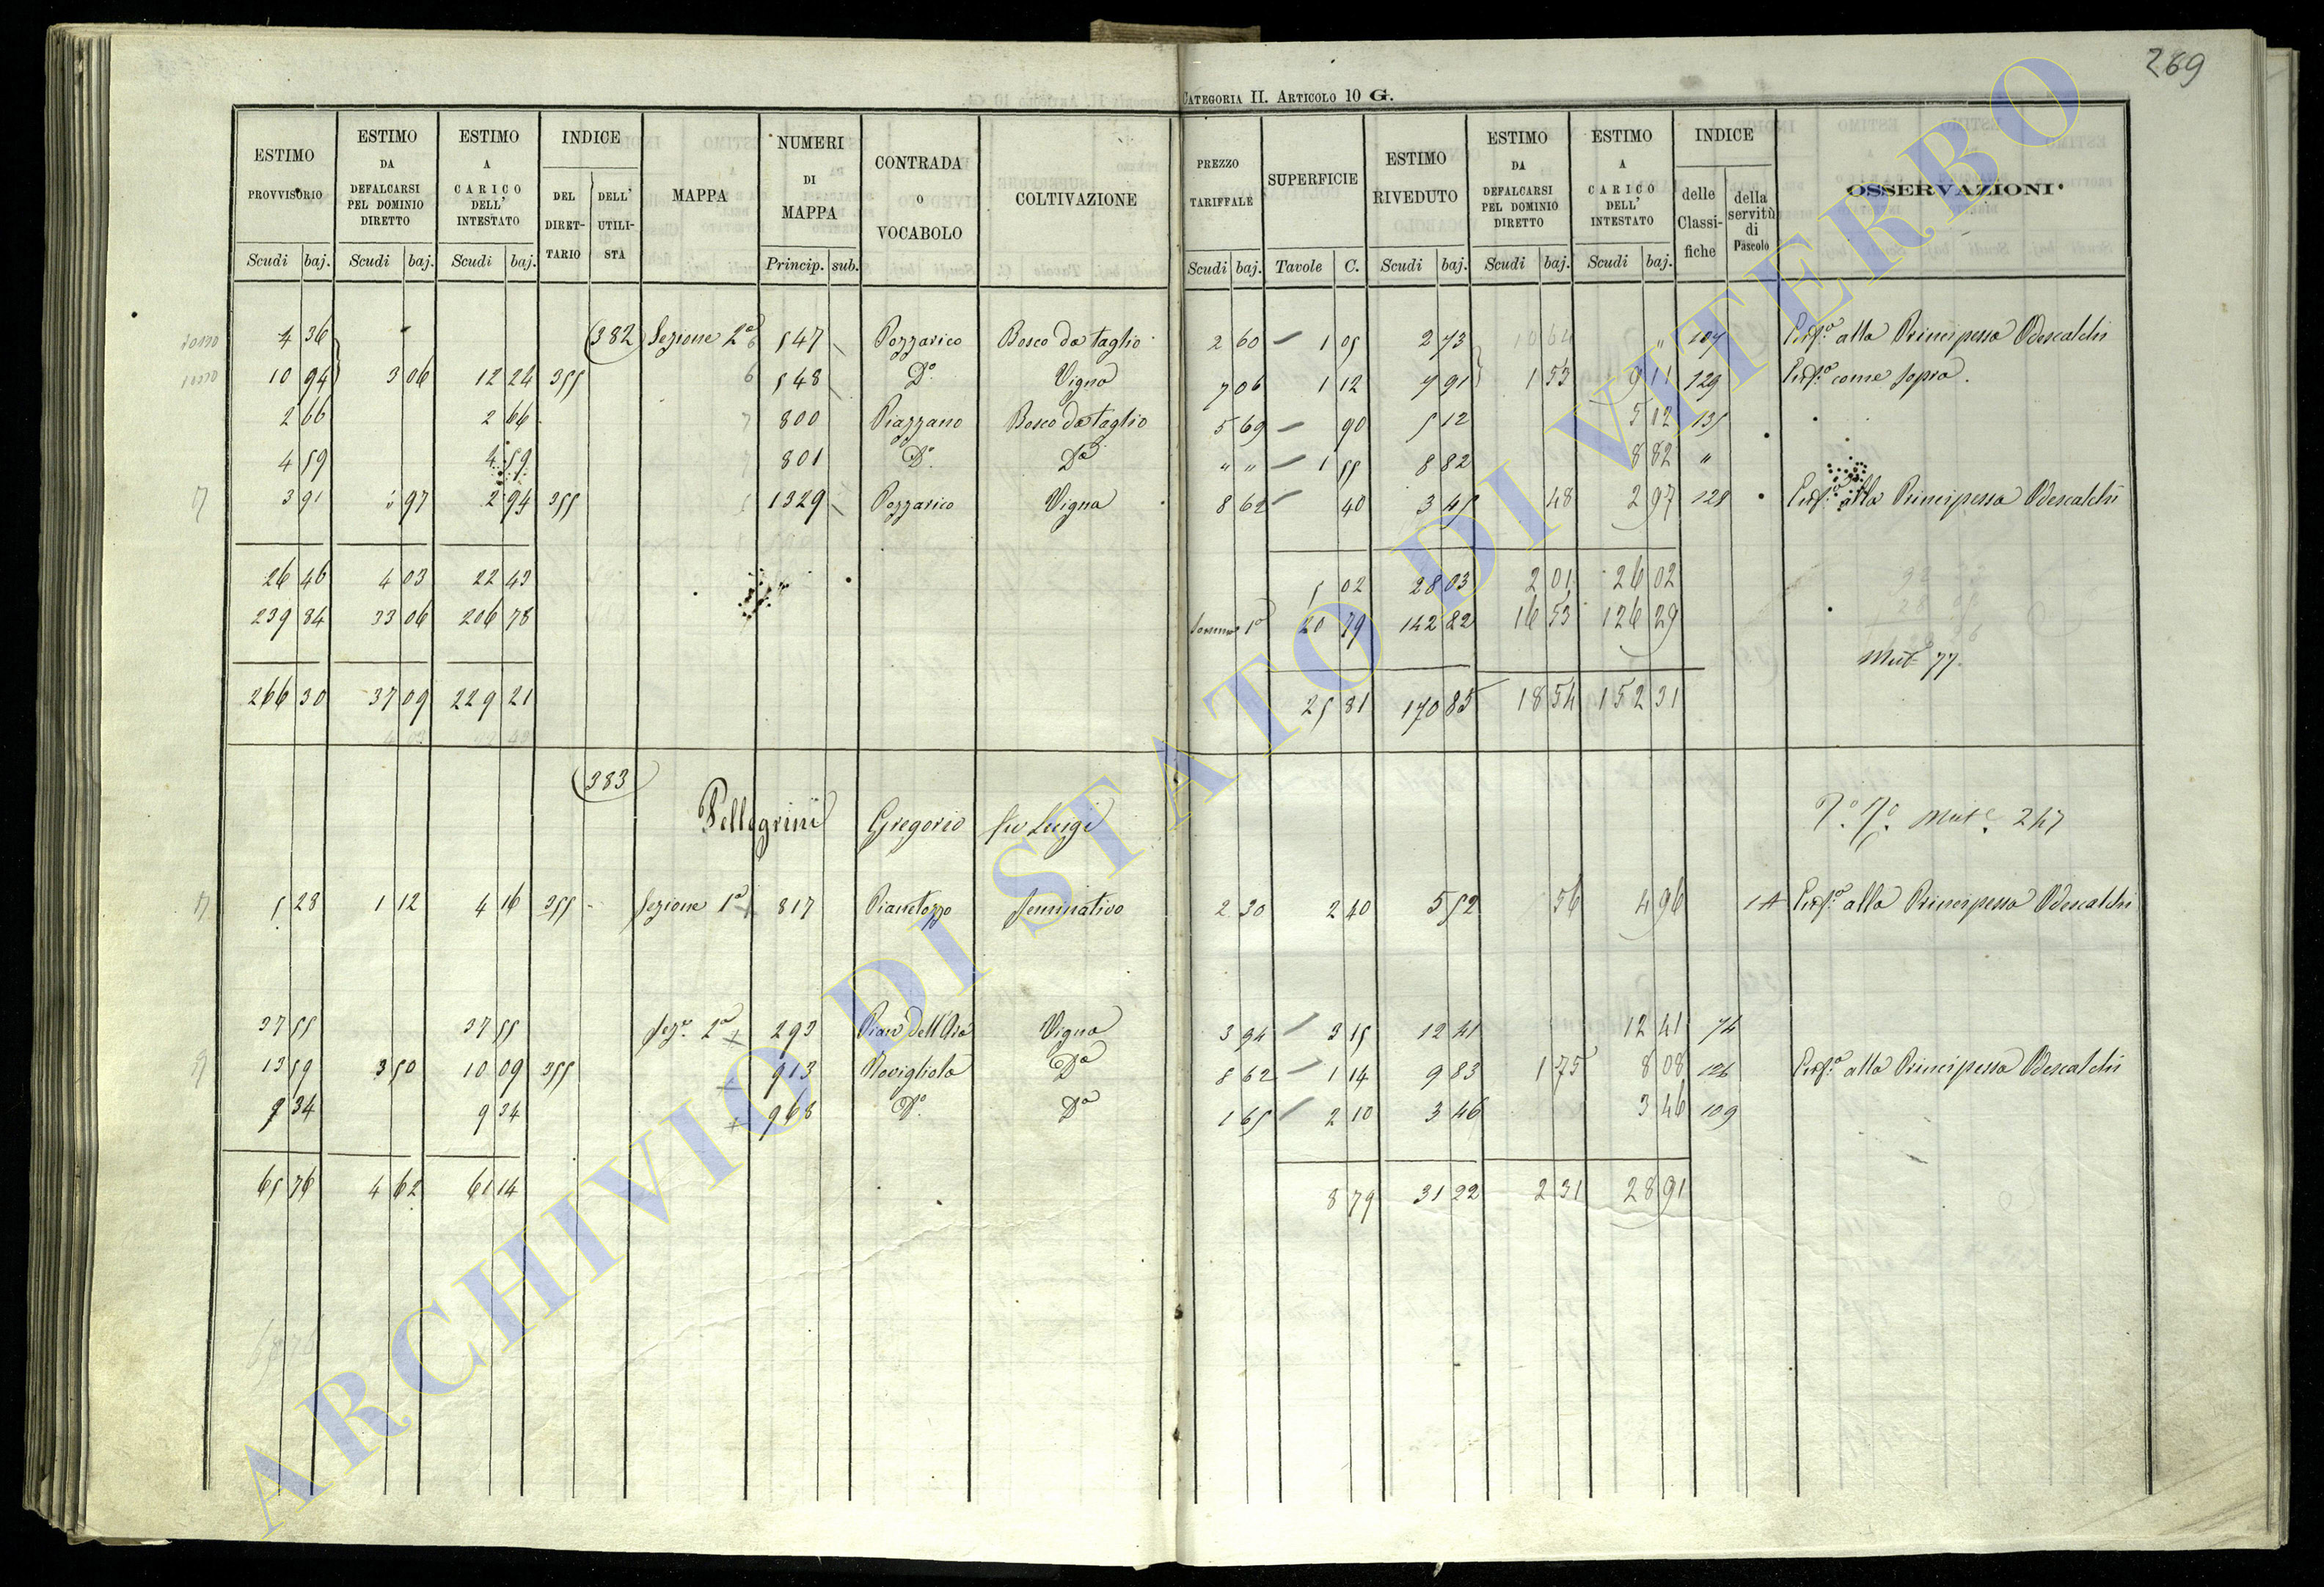 269
CATEGORIA II. ARTICOLO 10 G.
ESTIMO PROVVISORIO Scudi baj. ESTIMO DA DEFALCARSI PEL DOMINIO DIRETTO Scudi baj. ESTIMO A CARICO DELL' INTESTATO Scudi baj. INDICE DEL DIRETTARIO DELL' UTILISTA MAPPA NUMERI DI MAPPA Princip. sub. CONTRADA O VOCABOLO COLTIVAZIONE PREZZO TARIFFALE Scudi baj. SUPERFICIE Tavole C. ESTIMO RIVEDUTO Scudi baj. ESTIMO DA DEFALCARSI PEL DOMINIO DIRETTO Scudi baj. ESTIMO A CARICO DELL' INTESTATO Scudi baj. INDICE delle Classifiche della servitù di Pascolo OSSERVAZIONI
4 36 382 Sezione 2a 547 Pozzarico Bosco da taglio 2 60 1 05 2 73 " 107 alla Principessa Odescalchi
10 94 3 06 12 24 355 548 Do Vigna 7 06 1 12 7 91 1 53 9 11 129 come sopra.
2 66 2 66 800 Piazzano Bosco da taglio 5 69 90 5 12 5 12 135
4 59 4 59 801 Do Do " " 1 55 8 82 8 82 "
3 91 97 2 94 355 1329 Pozzarico Vigna 8 62 40 3 45 48 2 97 128 alla Principessa Odescalchi
26 46 4 03 22 43 5 02 28 03 2 01 26 02
239 84 33 06 206 78 Somma 1a 20 79 142 82 16 53 126 29
Mut 77.
266 30 37 09 229 21 25 81 170 85 18 54 152 31
383
Pellegrini Gregorio fu Luigi Mut. 247
5 28 1 12 4 16 355 Sezione 1a 817 Pianetozzo Seminativo 2 30 2 40 5 52 56 4 96 1A alla Principessa Odescalchi
37 55 37 55 Sez. 2a 293 Vigna 3 94 3 15 12 41 12 41 74
13 59 3 50 10 09 355 913 Rovigliola Da 8 62 1 14 9 83 1 75 8 08 126 alla Principessa Odescalchi
9 34 9 34 968 Do Da 1 65 2 10 3 46 3 46 109
65 76 4 62 61 14 8 79 31 22 2 31 28 91
ARCHIVIO DI STATO DI VITERBO